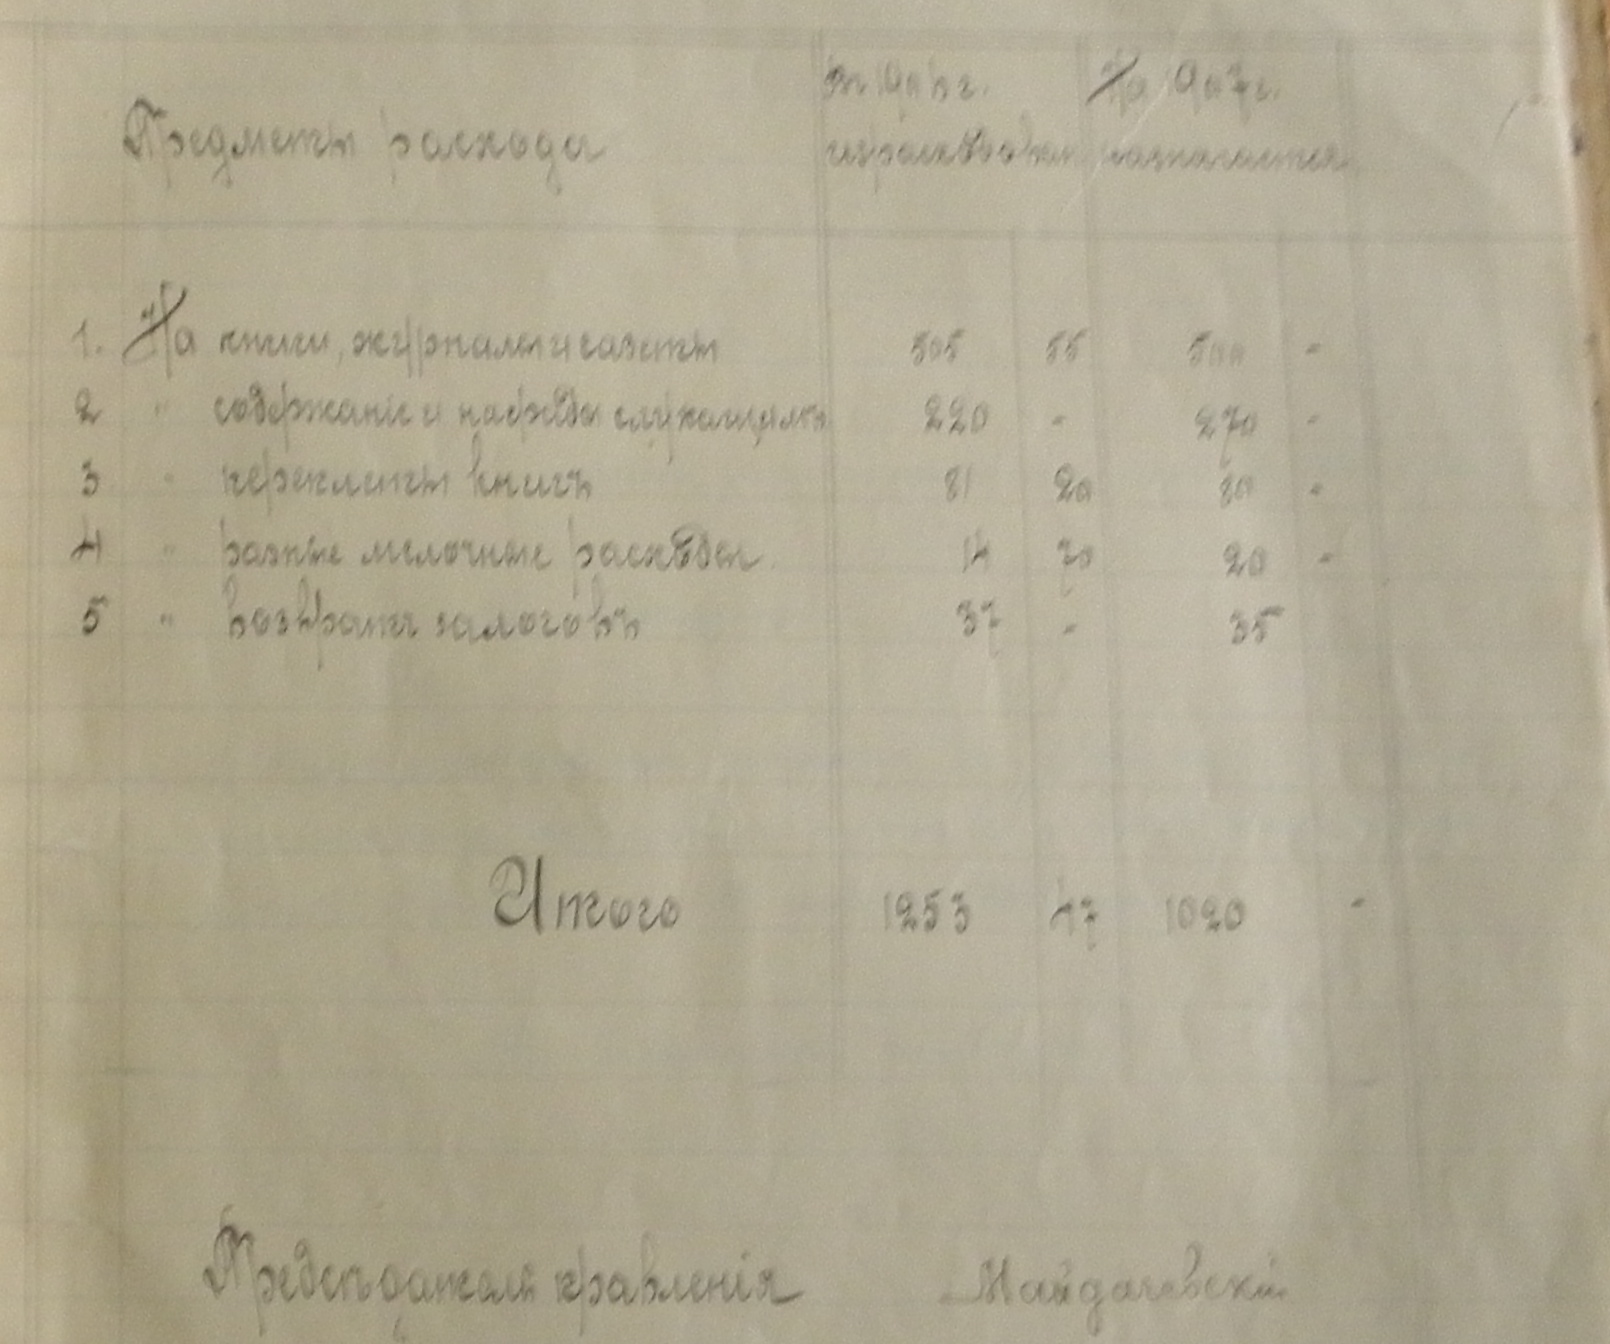 Предметы расхода
въ 1906 г. На 1907 г.
израсходован. назначается
1. На книги, журналы и газеты 505 55 500 -
2 " содержаніе и награды служащимъ 220 - 270 -
3 " переплеты книгъ 81 20 80 -
4 " разные мелочные расходы 14 70 20 -
5 " возвратъ залоговъ 37 - 35
Итого 1253 47 1020 -
Предсѣдатель правленія Майдачевскій